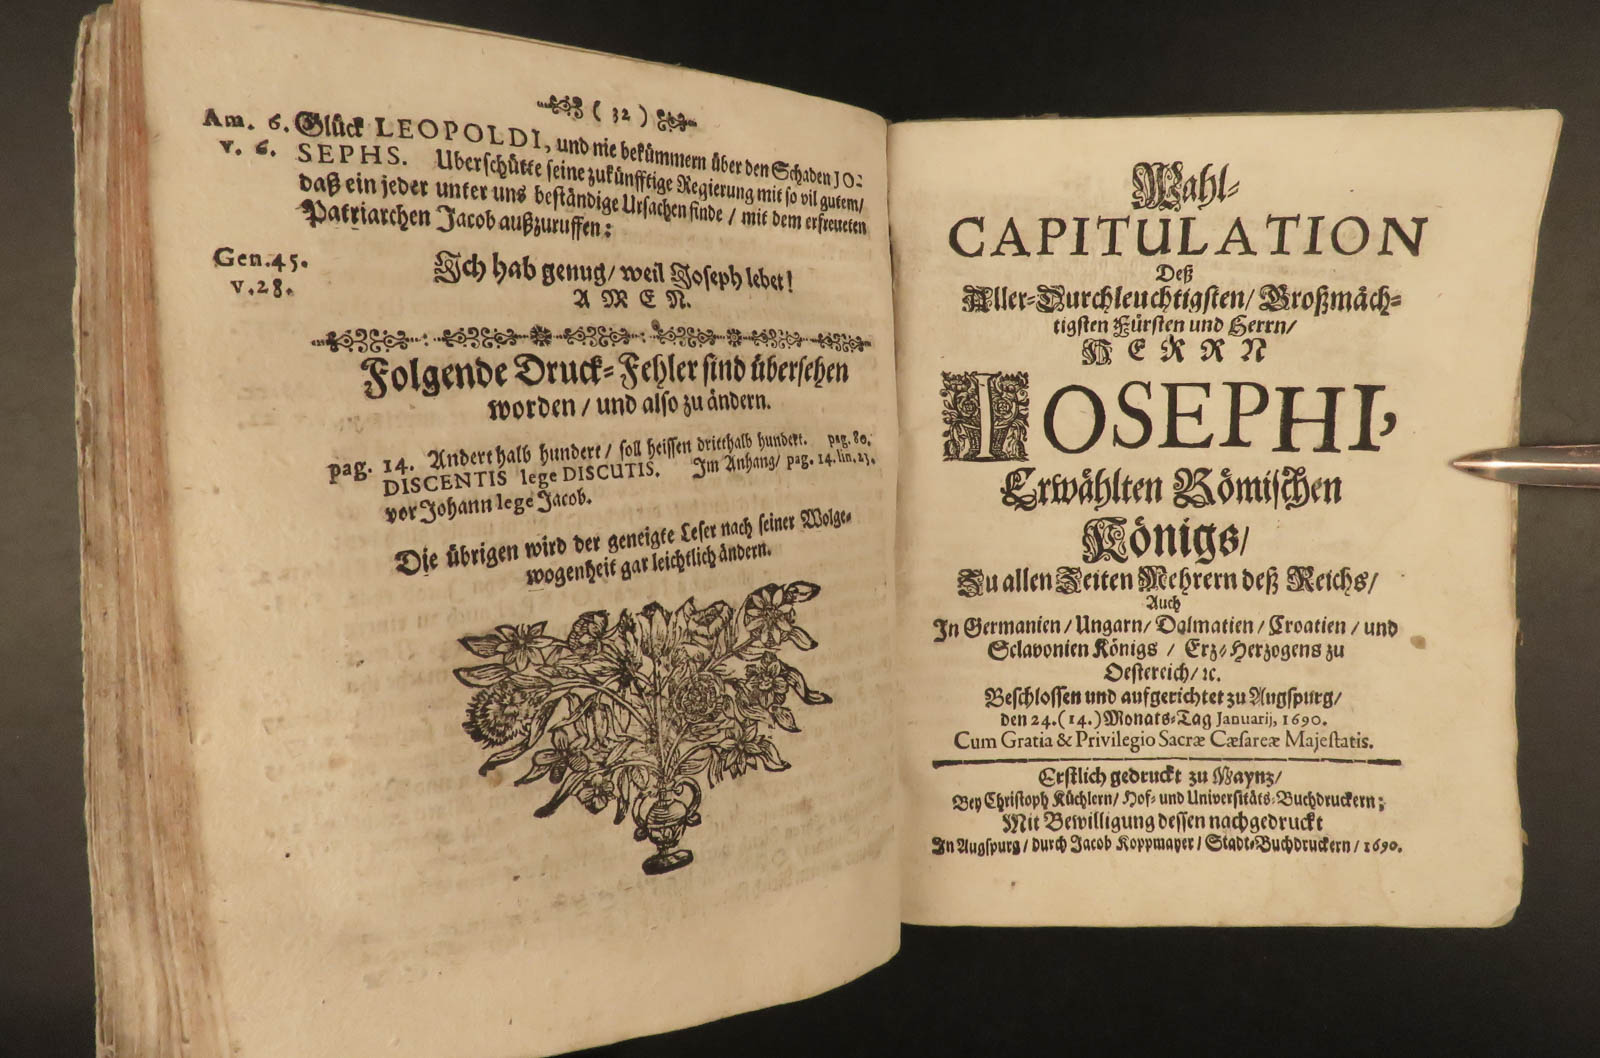 ( 32 )
Am. 6. Glück LEOPOLDI, und nie bekümmern über den Schaden JO-
v. 6. SEPHS. Uberschütte seine zukünfftige Regierung mit so vil gutem/
daß ein jeder unter uns beständige Ursachen finde / mit dem erfreueten
Patriarchen Jacob außzuruffen:
Gen. 45. Ich hab genug/ weil Joseph lebet!
v. 28. AMEN.
Folgende Druck-Fehler sind übersehen
worden / und also zu ändern.
pag. 14. Anderthalb hundert / soll heissen dritthalb hundert. pag. 80.
DISCENTIS lege DISCUTIS. Im Anhang/ pag. 14. lin. 23.
vor Johann lege Jacob.
Die übrigen wird der geneigte Leser nach seiner Wolge-
wogenheit gar leichtlich ändern.
Wahl-
CAPITULATION
Deß
Aller-Durchleuchtigsten/ Großmäch-
tigsten Fürsten und Herrn/
HERRN
IOSEPHI,
Erwählten Römischen
Königs/
Zu allen Zeiten Mehrern deß Reichs/
Auch
In Germanien/ Ungarn/ Dalmatien/ Croatien / und
Sclavonien Königs / Ertz-Hertzogens zu
Oestereich/ ꝛc.
Beschlossen und auffgerichtet zu Augspurg/
den 24. (14.) Monats-Tag Januarij, 1690.
Cum Gratia & Privilegio Sacræ Cæsareæ Majestatis.
Erstlich gedruckt zu Maynz/
Bey Christoph Küchlern/ Hof- und Universitäts-Buchdruckern;
Mit Bewilligung dessen nachgedruckt
In Augspurg/ durch Jacob Koppmayer/ Stadt-Buchdruckern/ 1690.